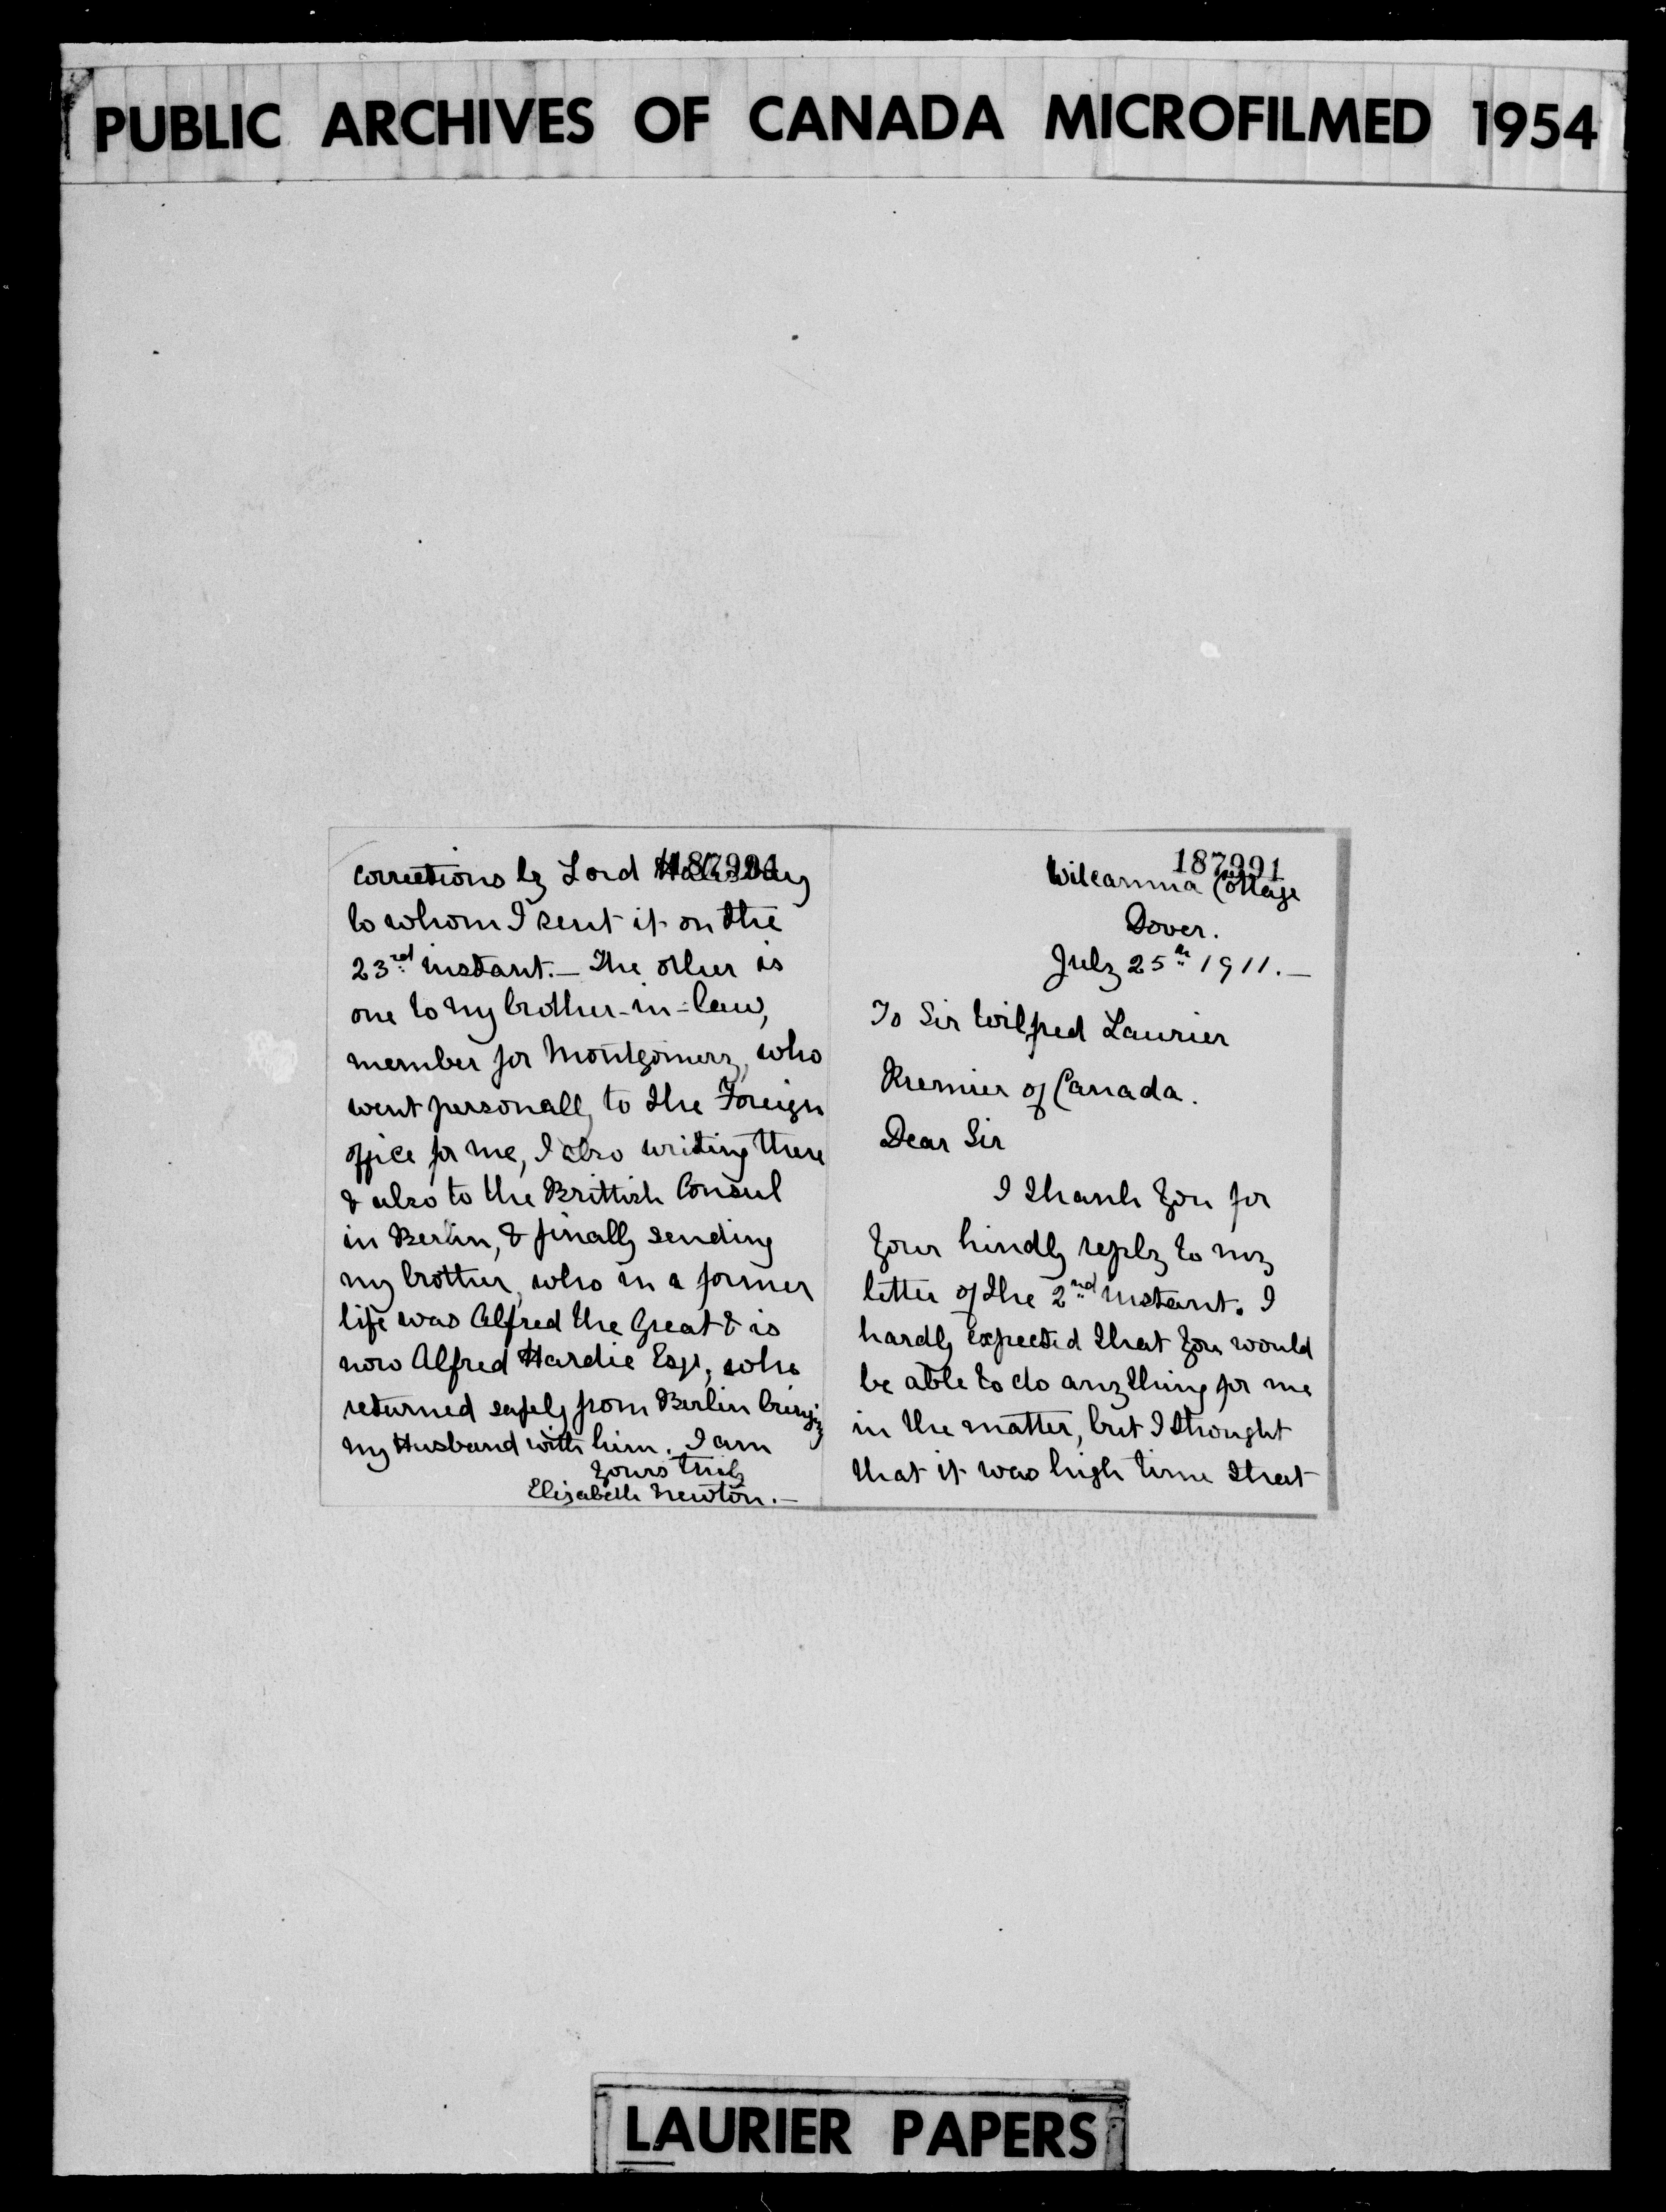 PUBLIC ARCHIVES OF CANADA MICROFILMED 1954
corrections by Lord
to whom I sent it on the
23rd instant. — The other is
one to my brother-in-law,
member for Montgomery, who
went personally to the Foreign
office for me, I also writing there
& also to the Brittish Consul
in Berlin, & finally sending
my brother, who in a former
life was Alfred the Great & is
now Alfred Hardie Esqr, who
returned safely from Berlin bringing
my Husband with him. I am
Yours truly
Elisabeth Newton. —
187991
Cottage
Dover.
July 25th 1911. —
To Sir Wilfred Laurier
Premier of Canada.
Dear Sir
I thank you for
your kindly reply to my
letter of the 2nd instant. I
hardly expected that you would
be able to do anything for me
in the matter, but I thought
that it was high time that
LAURIER PAPERS